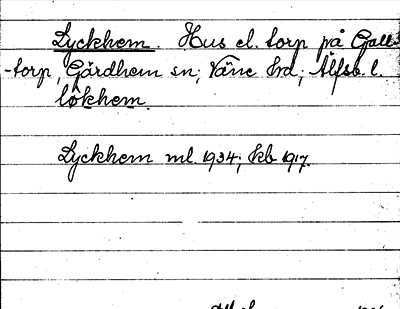 Lyckhem. Hus el. torp på Gall-
-torp, Gärdhem sn; Väne hd; Älfsb. l.
lökhem.
Lyckhem ml. 1934; kb 1917.